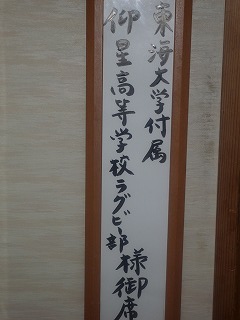 東海大学付属
仰星高等学校ラグビー部様御席